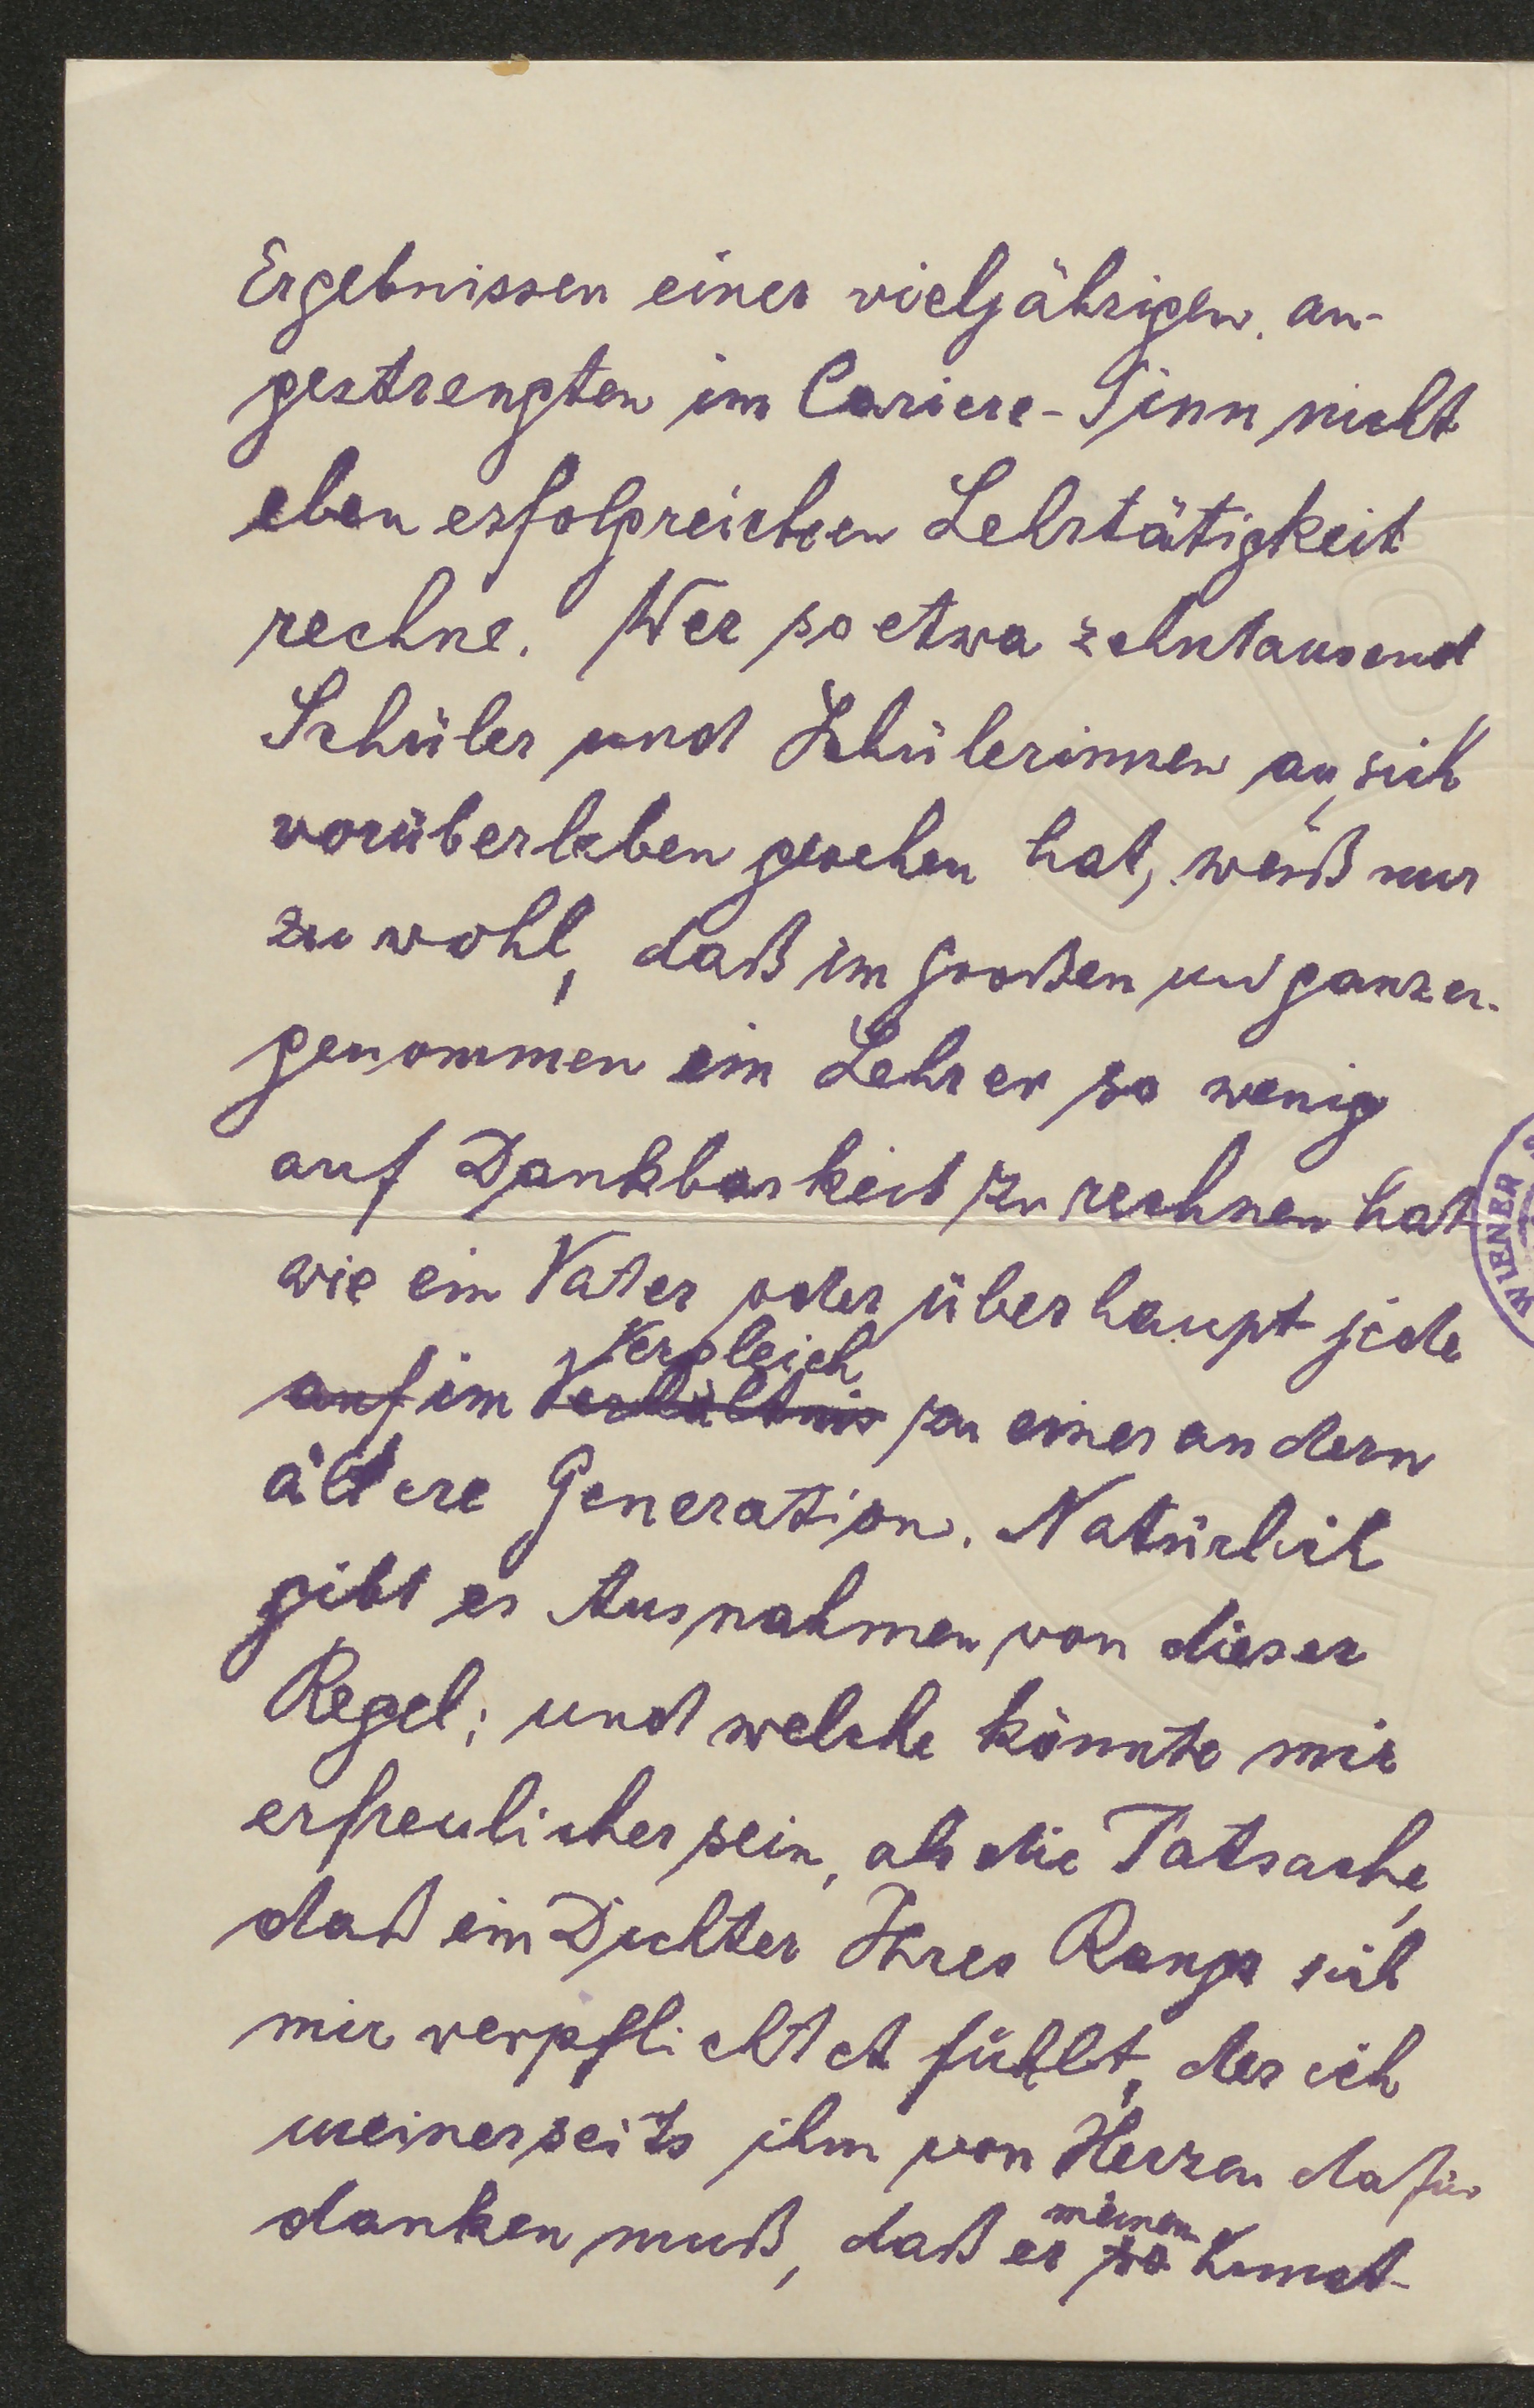 Ergebnissen einer vieljährigen, an-
gestrengten im Cariere-Sinn nicht
eben erfolgreichen Lehrtätigkeit
rechne. Wer so etwa zehntausend
Schüler und Schülerinnen an sich
vorüberleben gesehen hat, weiß nur
zu wohl, daß im großen und ganzen
genommen ein Lehrer so wenig
auf Dankbarkeit zu rechnen hat
wie ein Vater oder überhaupt jede
Vergleich
auf im Verhältnis zu einer andern
ältere Generation. Natürlich
gibt es Ausnahmen von dieser
Regel; und welche könnte mir
erfreulicher sein, als die Tatsache,
daß ein Dichter Ihres Rangs sich
mir verpflichtet fühlt, der ich
meinerseits ihm von Herzen dafür
meinen
danken muß, daß er so kunst-
WIENER